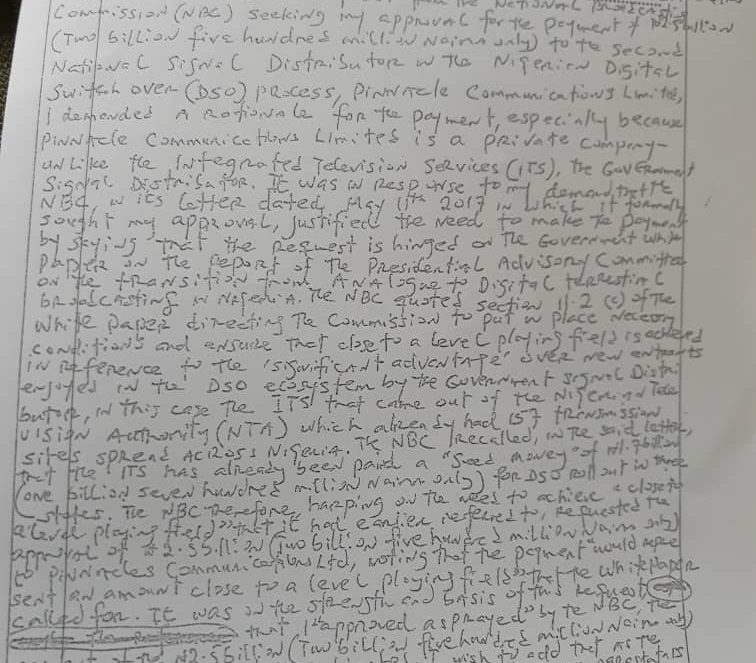 from the National Broadcast
Commission (NBC) seeking my approval for the payment of N2.5billion
(Two billion five hundred million Naira only) to the second
National Signal Distributor in the Nigerian Digital
Switch over (DSO) process, Pinnacle Communications Limited,
I demanded a rationale for the payment, especially because
Pinnacle Communications Limited is a private company
unlike the Integrated Television Services (ITS), the Government
Signal Distributor. It was in response to my demand, that the
NBC, in its letter dated, May 11th 2017 in which it formally
sought my approval, justified the need to make the payment
by saying that the request is hinged on the Government White
Paper on the report of the Presidential Advisory Committee
on the transition from Analogue to Digital terrestrial
broadcasting in Nigeria. The NBC quoted section 11.2 (c) of the
White paper directing the Commission to put in place necessary
conditions and ensure that close to a level playing field is achieved
in reference to the 'significant advantage' over new entrants
enjoyed in the DSO ecosystem by the Government Signal Distri
butor, in this case the ITS that came out of the Nigerian Tele
vision Authority (NTA) which already had 157 transmission
sites spread across Nigeria. The NBC recalled, in the said letter,
that the ITS has already been paid a "seed money" of N1.7billion
(one billion seven hundred million Naira only) for DSO roll out in three
states. The NBC therefore, harping on the need to achieve "close to
a level playing field" that it had earlier referred to, requested the
approval of N2.5billion (Two billion five hundred million Naira only)
to Pinnacles Communications Ltd, noting that the payment "would repre
sent an amount close to a level playing field" that the White Paper
called for. It was on the strength and basis of this request
that I "approved as prayed" by the NBC, the
of the N2.5billion (Two billion five hundred million Naira only)
wish to add that as the